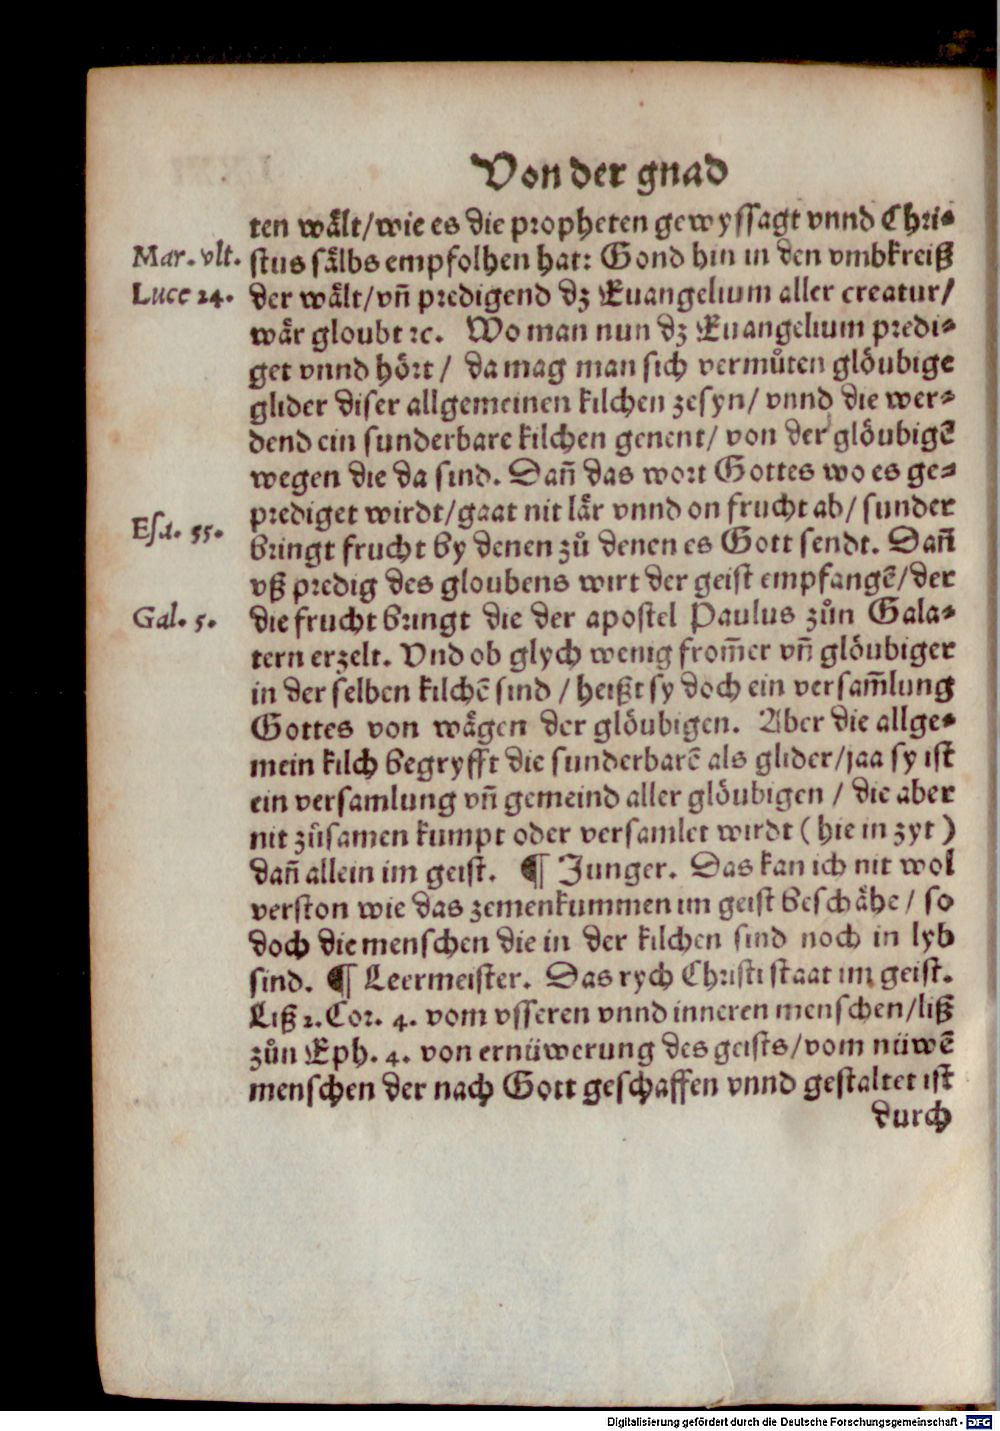 Von der gnad
ten waͤlt/wie es die propheten gewyssagt vnnd Chri⸗
Mar. vlt. stus saͤlbs empfolhen hat: Gond hin in den vmbkreiß
Luce 24. der waͤlt/vn̄ predigend dz Euangelium aller creatur/
waͤr gloubt ꝛc. Wo man nun dz Euangelium predi⸗
get vnnd hoͤrt / da mag man sich vermuͦten gloͤubige
glider diser allgemeinen kilchen zesyn/ vnnd die wer⸗
dend ein sunderbare kilchen genent/ von der gloͤubigē
wegen die da sind. Dan̄ das wort Gottes wo es ge⸗
prediget wirdt/gaat nit laͤr vnnd on frucht ab/ sunder
Esa. 55. bringt frucht by denen zuͦ denen es Gott sendt. Dan̄
vß predig des gloubens wirt der geist empfangē/der
Gal. 5. die frucht bringt die der apostel Paulus zuͦn Gala⸗
tern erzelt. Vnd ob glych wenig from̄er vn̄ gloͤubiger
in der selben kilchē sind / heißt sy doch ein versam̄lung
Gottes von waͤgen der gloͤubigen. Aber die allge⸗
mein kilch begryfft die sunderbarē als glider/jaa sy ist
ein versamlung vn̄ gemeind aller gloͤubigen / die aber
nit zuͦsamen kumpt oder versamlet wirdt (hie in zyt)
dan̄ allein im geist. ¶ Junger. Das kan ich nit wol
verston wie das zemenkummen im geist beschaͤhe / so
doch die menschen die in der kilchen sind noch in lyb
sind. ¶ Leermeister. Das rych Christi staat im geist.
Liß 2. Cor. 4. vom vsseren vnnd inneren menschen/liß
zuͦn Eph. 4. von ernüwerung des geists/vom nüwē
menschen der nach Gott geschaffen vnnd gestaltet ist
durch
Digitalisierung gefördert durch die Deutsche Forschungsgemeinschaft - DFG